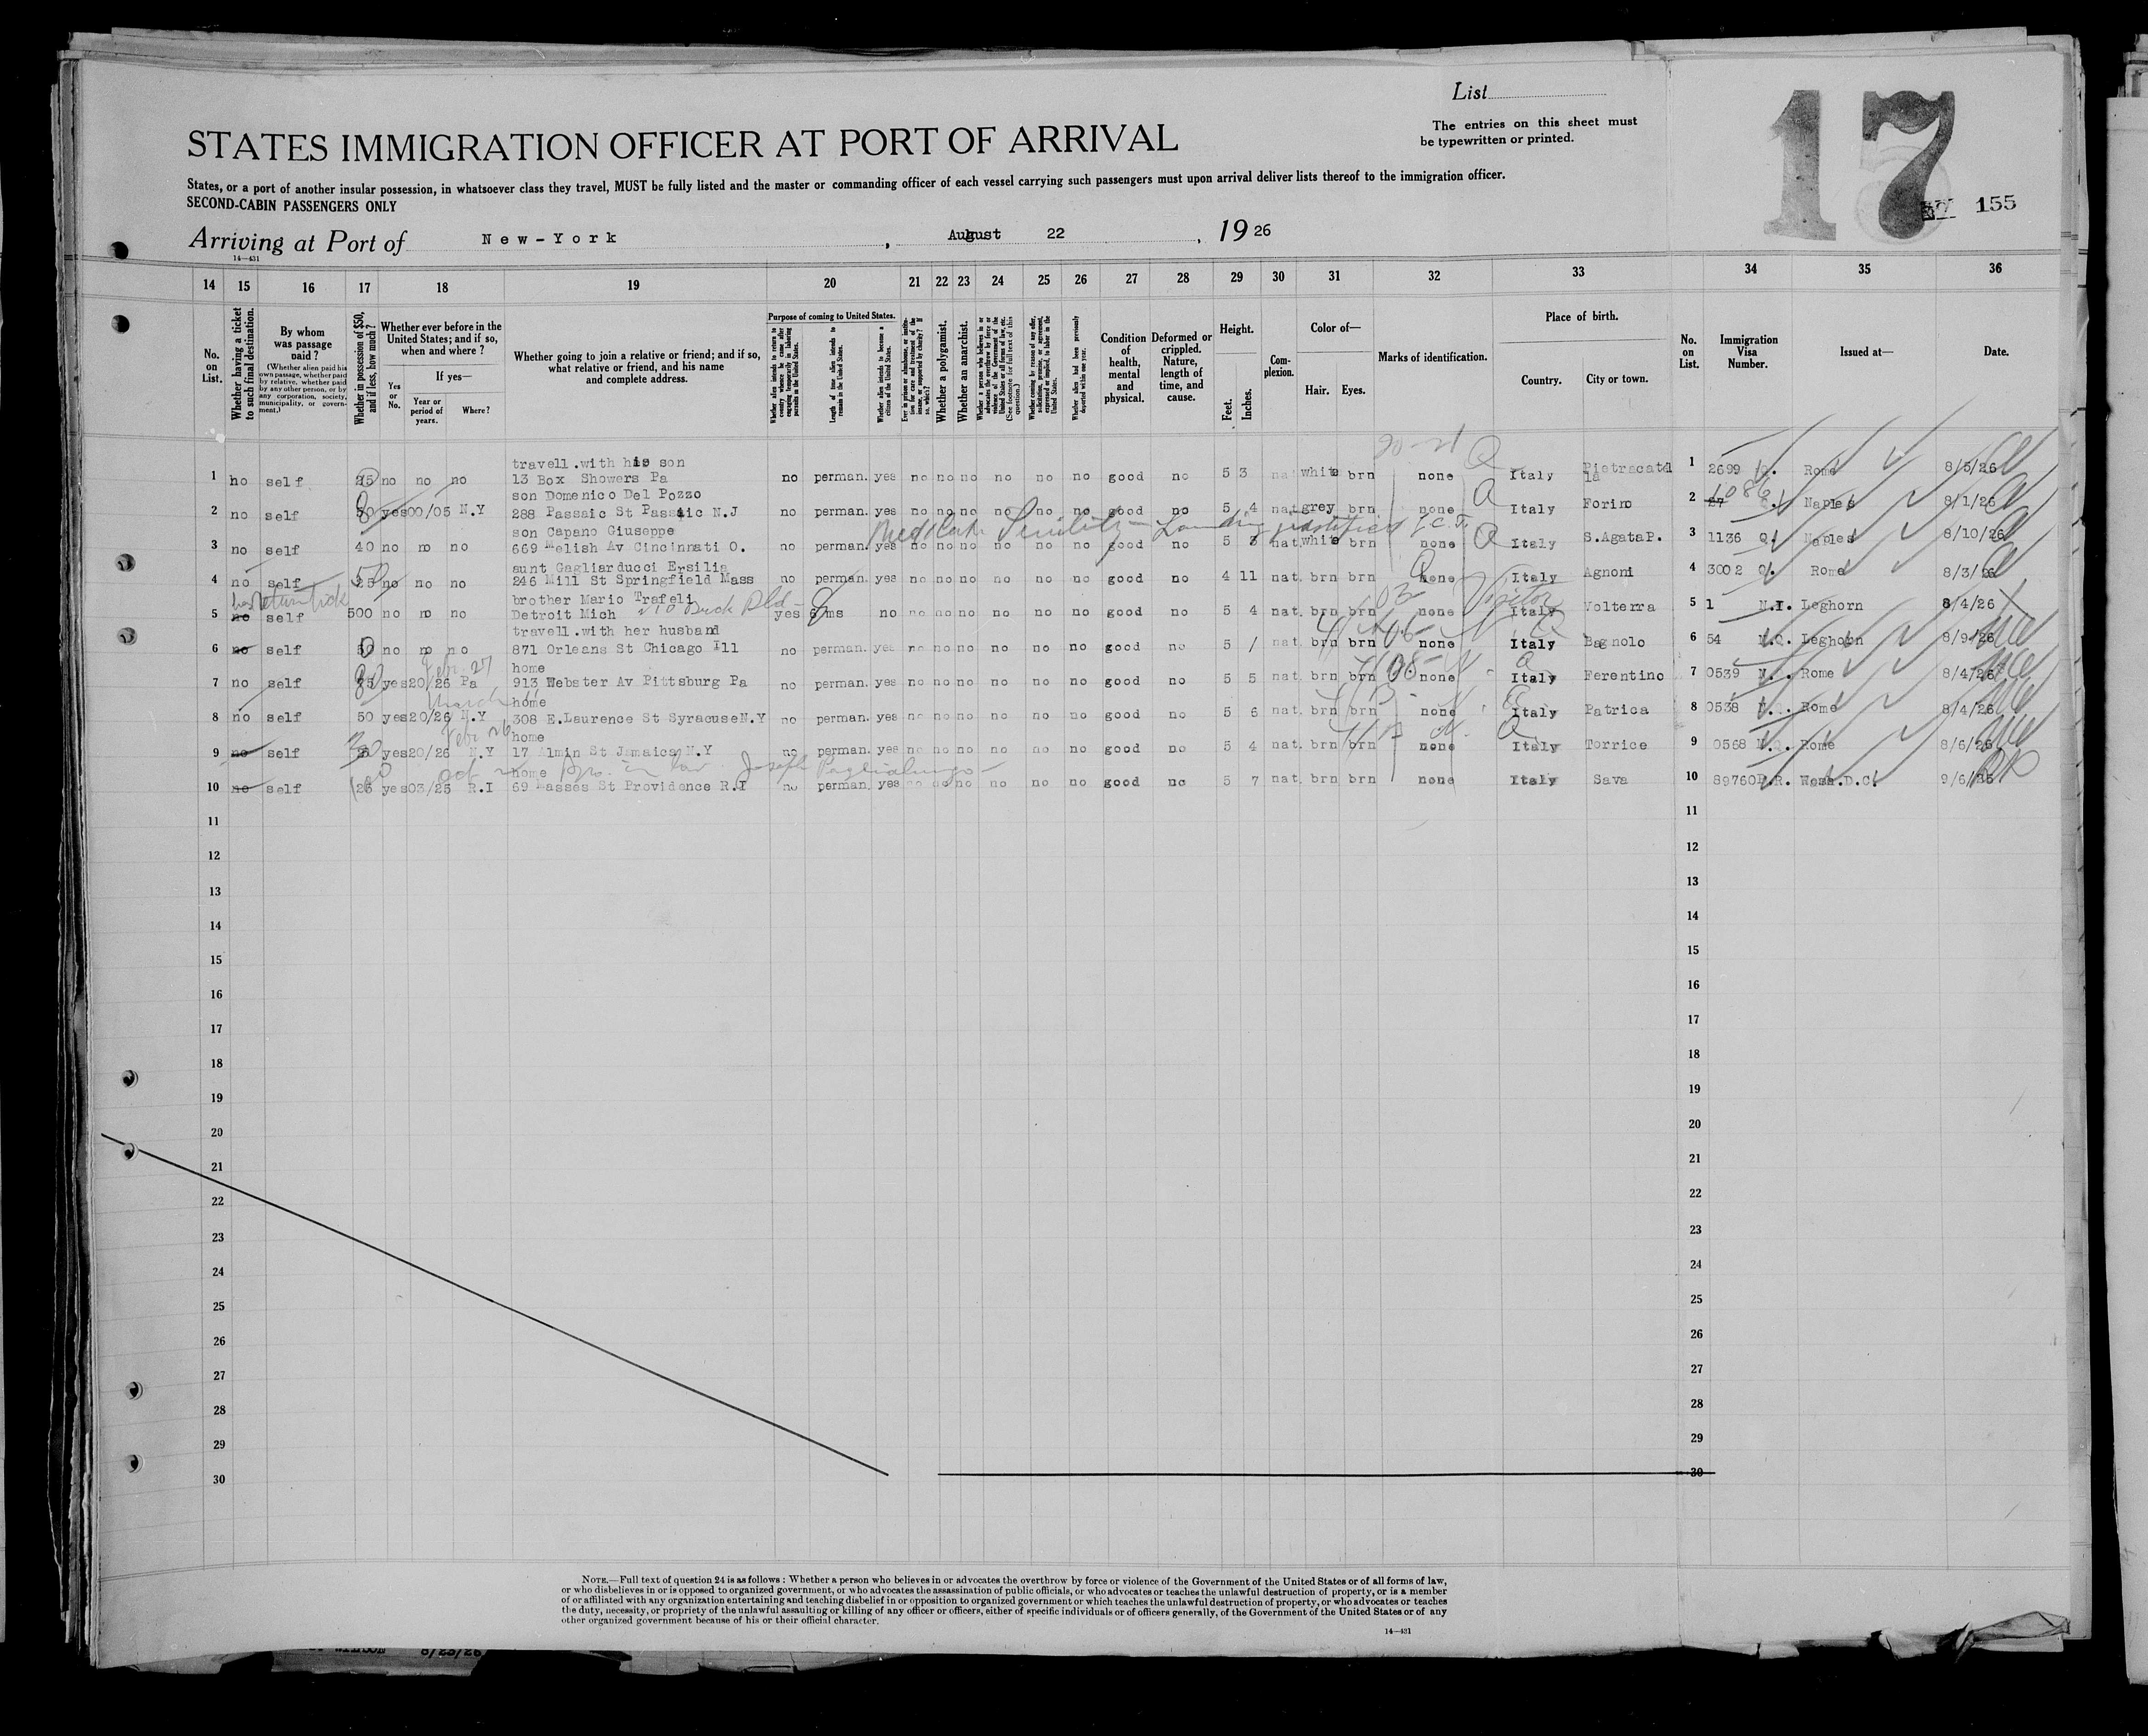 List
The entries on this sheet must
be typewritten or printed.
17
155
STATES IMMIGRATION OFFICER AT PORT OF ARRIVAL
States, or a port of another insular possession, in whatsoever class they travel, MUST be fully listed and the master or commanding officer of each vessel carrying such passengers must upon arrival deliver lists thereof to the immigration officer.
SECOND-CABIN PASSENGERS ONLY
Arriving at Port of New-York, August 22, 1926
14—431
14 15 16 17 18 19 20 21 22 23 24 25 26 27 28 29 30 31 32 33 34 35 36
No. on List.
Whether having a ticket to such final destination.
By whom was passage paid?
(Whether alien paid his own passage, whether paid by relative, whether paid by any other person, or by any corporation, society, municipality, or government.)
Whether in possession of $50, and if less, how much?
Whether ever before in the United States; and if so, when and where?
Yes or No.
If yes—
Year or period of years.
Where?
Whether going to join a relative or friend; and if so, what relative or friend, and his name and complete address.
Purpose of coming to United States.
Whether alien intends to return to country whence he came after engaging temporarily in laboring pursuits in the United States.
Length of time alien intends to remain in the United States.
Whether alien intends to become a citizen of the United States.
Whether a polygamist.
Whether an anarchist.
Condition of health, mental and physical.
Deformed or crippled. Nature, length of time, and cause.
Height.
Feet.
Inches.
Complexion.
Color of—
Hair.
Eyes.
Marks of identification.
Place of birth.
Country.
City or town.
No. on List.
Immigration Visa Number.
Issued at—
Date.
travell.with his son
1 no self 25 no no no 13 Box Showers Pa no perman. yes no no no no no no good no 5 3 nat white brn none Italy 1 2699 Q. Rome 8/5/26
son Domenico Del Pozzo
2 no self yes 00/05 N.Y 288 Passaic St Passaic N.J no perman. yes no no no no no no good no 5 4 nat grey brn none Italy Forino 2 Naples 8/1/26
son Capano Giuseppe
Landing justified
3 no self 40 no no no 669 Melish Av Cincinnati O. no perman. yes no no no no no no good no 5 3 nat white brn none Italy S.AgataP. 3 1136 Q. Naples 8/10/26
aunt Gagliarducci Ersilia
4 no self 25 no no no 246 Mill St Springfield Mass no perman. yes no no no no no no good no 4 11 nat. brn brn none Italy Agnoni 4 3002 Q. Rome 8/3/26
brother Mario Trafeli
Visitor
5 no self 500 no no no Detroit Mich yes ms no no no no no no no good no 5 4 nat. brn brn none Italy Volterra 5 1 N.I. Leghorn 8/4/26
travell.with her husband
6 no self 50 no no no 871 Orleans St Chicago Ill no perman. yes no no no no no no good no 5 / nat. brn brn none Italy Bagnolo 6 54 N.Q. Leghorn 8/9/26
home
7 no self yes 20/26 Pa 913 Webster Av Pittsburg Pa no perman. yes no no no no no no good no 5 5 nat. brn brn none Italy Ferentino 7 0539 N. Rome 8/4/26
March
home
8 no self 50 yes 20/26 N.Y 308 E.Laurence St Syracuse N.Y no perman. yes no no no no no no good no 5 6 nat. brn brn none Italy Patrica 8 0538 N. Rome 8/4/26
home
9 no self yes 20/26 N.Y 17 Almin St Jamaica N.Y no perman. yes no no no no no no good no 5 4 nat. brn brn none Italy Torrice 9 0568 N.Q. Rome 8/6/26
home
10 no self yes 03/25 R.I 69 St Providence R.I no perman. yes no no no no no no good no 5 7 nat. brn brn none Italy Sava 10 89760 P.R. Wash.D.C. 9/6/
11 11
12 12
13 13
14 14
15 15
16 16
17 17
18 18
19 19
20 20
21 21
22 22
23 23
24 24
25 25
26 26
27 27
28 28
29 29
30 30
NOTE.—Full text of question 24 is as follows: Whether a person who believes in or advocates the overthrow by force or violence of the Government of the United States or of all forms of law,
or who disbelieves in or is opposed to organized government, or who advocates the assassination of public officials, or who advocates or teaches the unlawful destruction of property, or is a member
of or affiliated with any organization entertaining and teaching disbelief in or opposition to organized government or which teaches the unlawful destruction of property, or who advocates or teaches
the duty, necessity, or propriety of the unlawful assaulting or killing of any officer or officers, either of specific individuals or of officers generally, of the Government of the United States or of any
other organized government because of his or their official character.
14—431